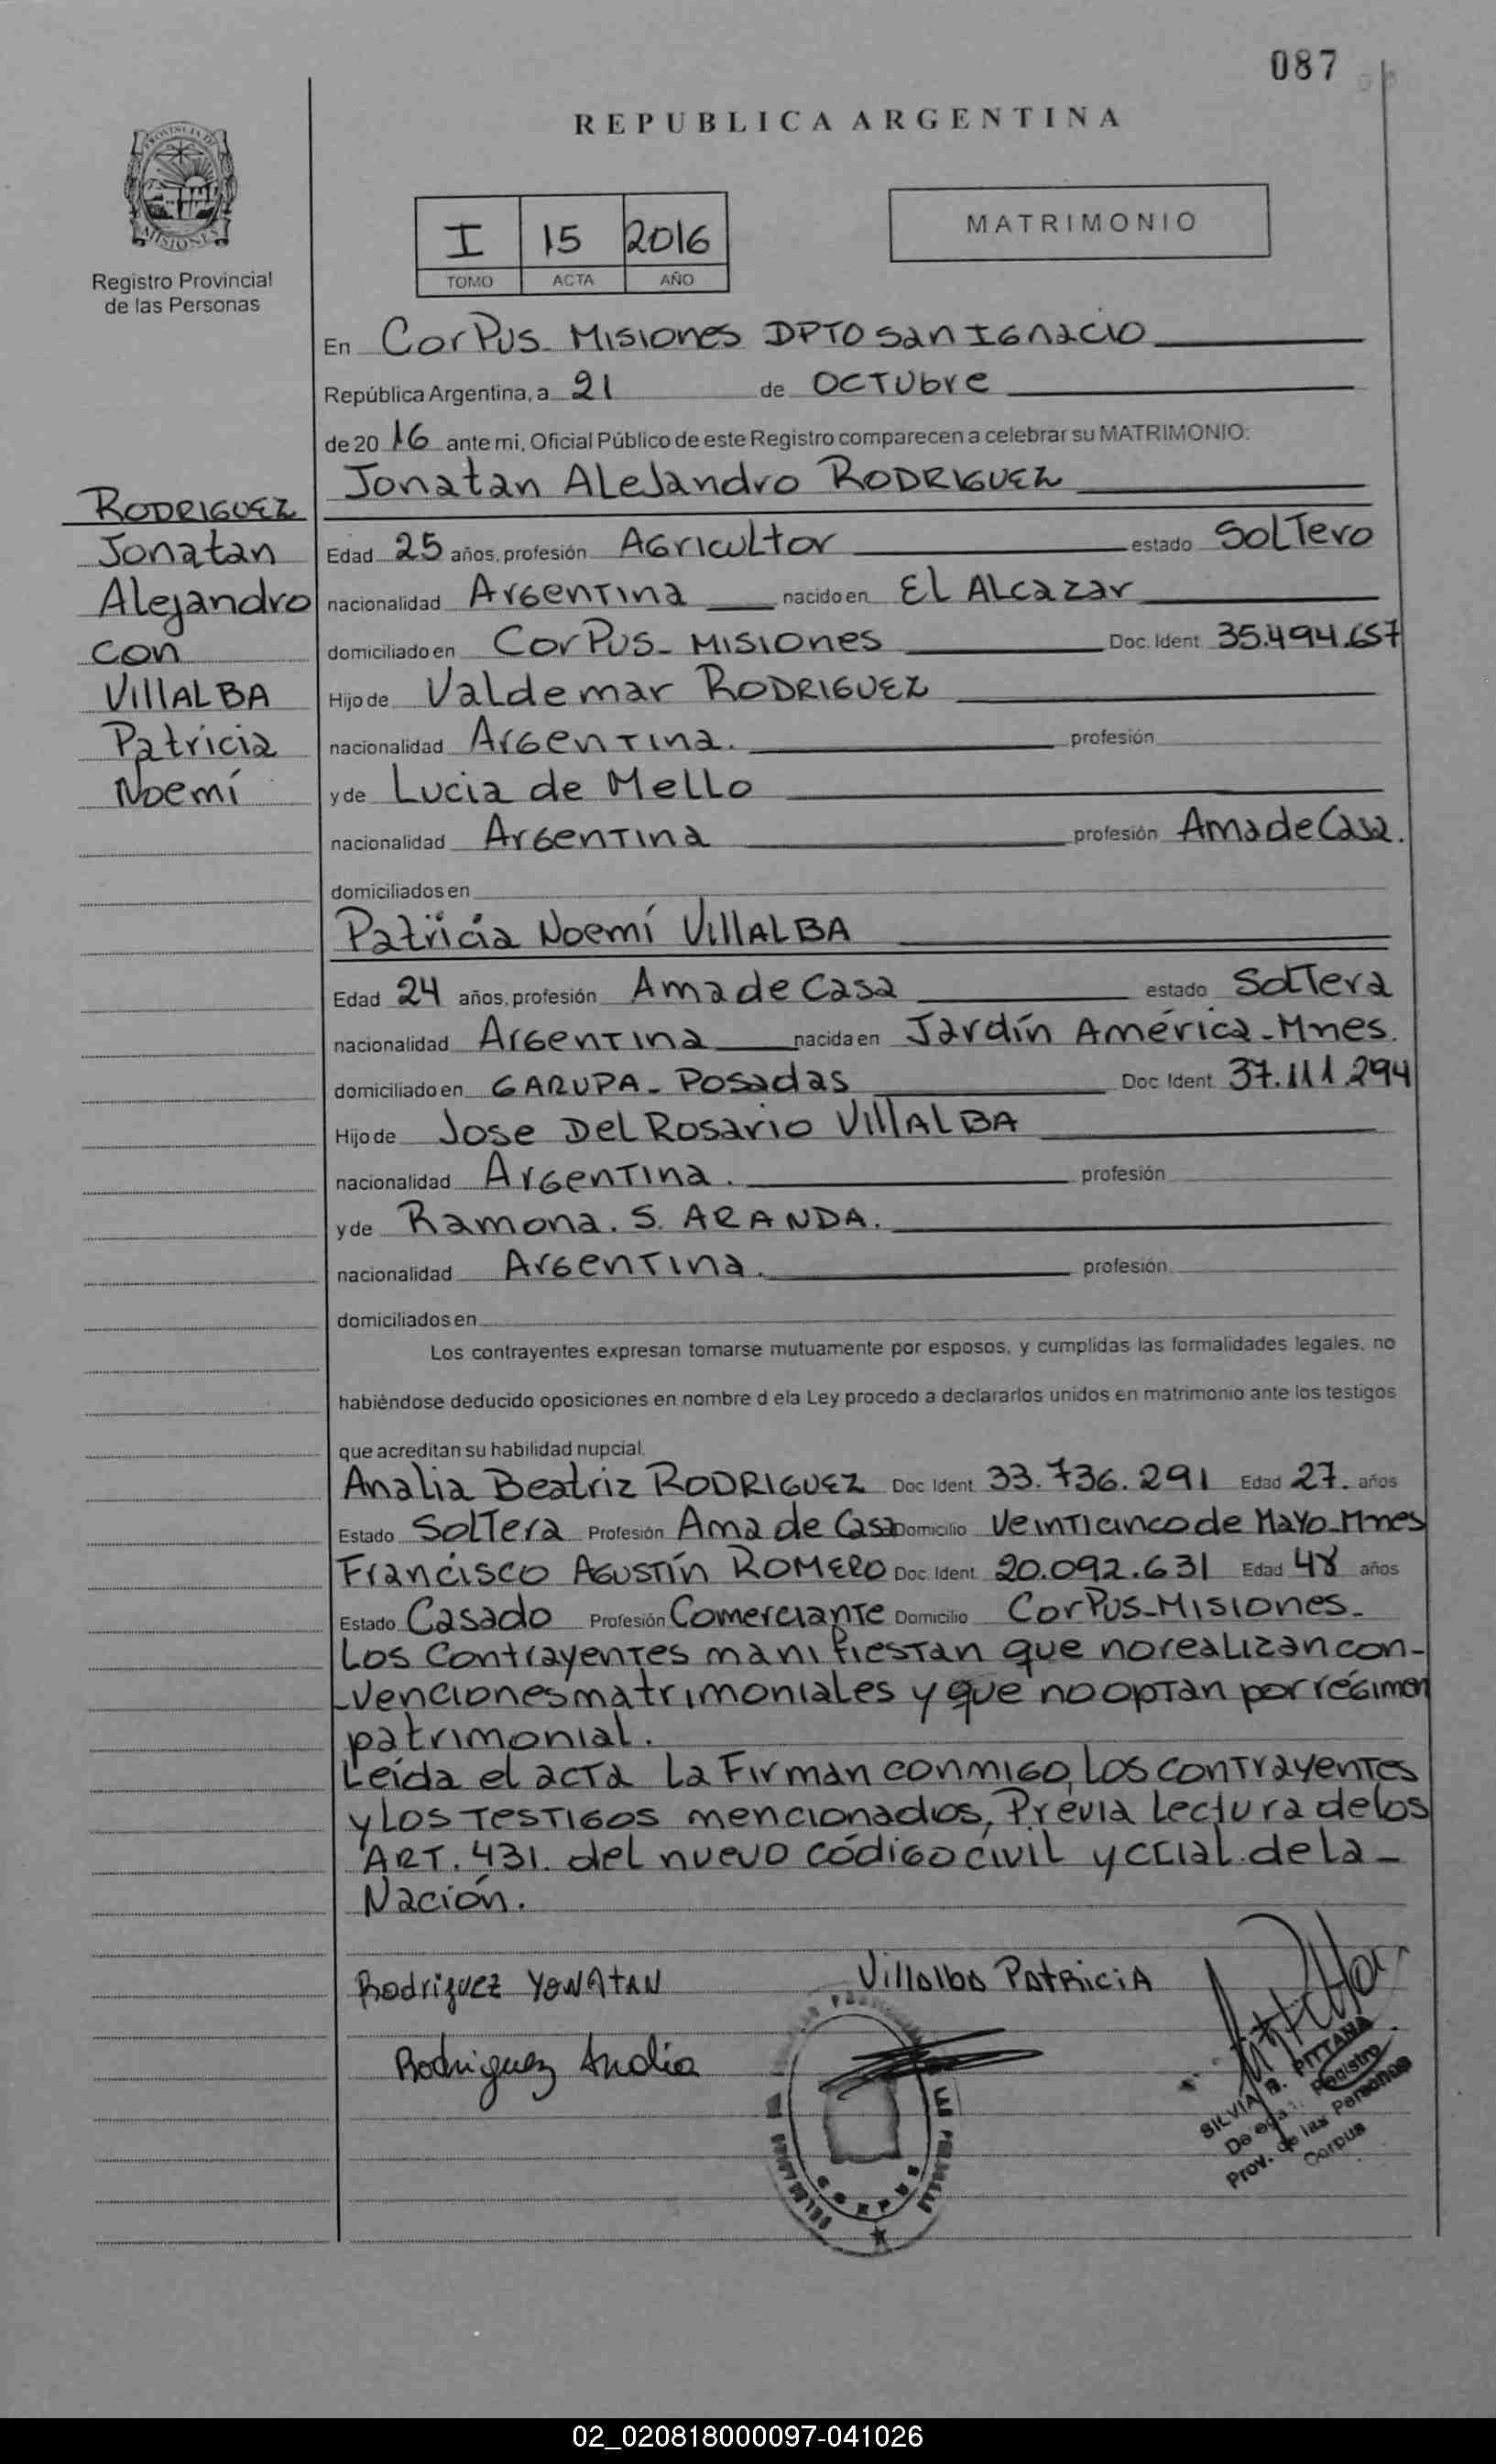 087
REPUBLICA ARGENTINA
PROVINCIA DE
MISIONES
Registro Provincial
de las Personas
I 15 2016
TOMO ACTA AÑO
MATRIMONIO
En CorPus - Misiones DPTO San Ignacio
República Argentina, a 21 de OCTUbre
de 20 16 ante mi, Oficial Público de este Registro comparecen a celebrar su MATRIMONIO:
Jonatan Alejandro RODRIGUEZ
RODRIGUEZ
Jonatan
Alejandro
con
VillALBA
Patricia
Noemí
Edad 25 años, profesión Agricultor estado Soltero
nacionalidad Argentina nacido en El Alcazar
domiciliado en CorPus - Misiones Doc. Ident. 35.494.657
Hijo de Valdemar RODRIGUEZ
nacionalidad Argentina. profesión
y de Lucia de Mello
nacionalidad Argentina profesión Ama de Casa.
domiciliados en
Patricia Noemí VillALBA
Edad 24 años, profesión Ama de Casa estado Soltera
nacionalidad Argentina nacida en Jardín América - Mnes.
domiciliado en GARUPA - Posadas Doc. Ident. 37.111.294
Hijo de Jose Del Rosario VillALBA
nacionalidad Argentina. profesión
y de Ramona. S. ARANDA.
nacionalidad Argentina. profesión
domiciliados en
Los contrayentes expresan tomarse mutuamente por esposos, y cumplidas las formalidades legales, no
habièndose deducido oposiciones en nombre d ela Ley procedo a declararlos unidos en matrimonio ante los testigos
que acreditan su habilidad nupcial.
Analia Beatriz RODRIGUEZ Doc. Ident. 33.736.291 Edad 27. años
Estado Soltera Profesión Ama de Casa Domicilio Veinticinco de Mayo - Mnes
Francisco Agustín ROMERO Doc. Ident. 20.092.631 Edad 48 años
Estado Casado Profesión Comerciante Domicilio CorPus - Misiones -
Los Contrayentes manifiestan que no realizan con-
-venciones matrimoniales y que no optan por régimen
patrimonial.
Leída el acta la Firman conmigo, los contrayentes
y los testigos mencionados, Prévia Lectura de los
ART. 431. del nuevo código civil y CCial. de la -
Nación.
Rodriguez YONAtAN
Villalba PAtRiCiA
Rodriguez Analia
SILVIA R. PITTANA
Registro
Prov. de las Personas
Corpus
02_020818000097-041026